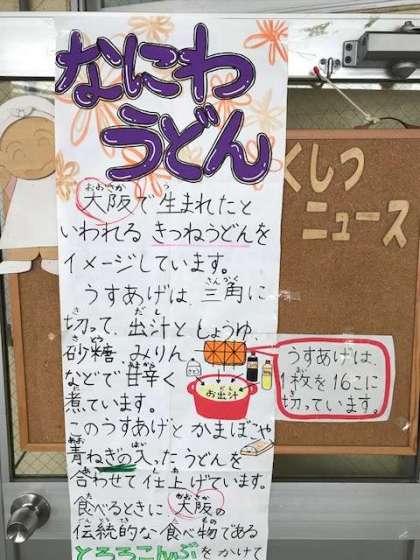 なにわ
うどん
大阪で生まれたと
いわれるきつねうどんを
イメージしています。
うすあげは、三角に
切って、出汁としょうゆ、
砂糖、みりん
などで甘辛く
煮ています。
お出汁
うすあげは、
1枚を16こに
切っています。
このうすあげとかまぼこや
青ねぎの入ったうどんを
合わせて仕上げています。
食べるときに大阪の
伝統的な食べ物である
とろろこんぶをかけて
くしつ
ニュース